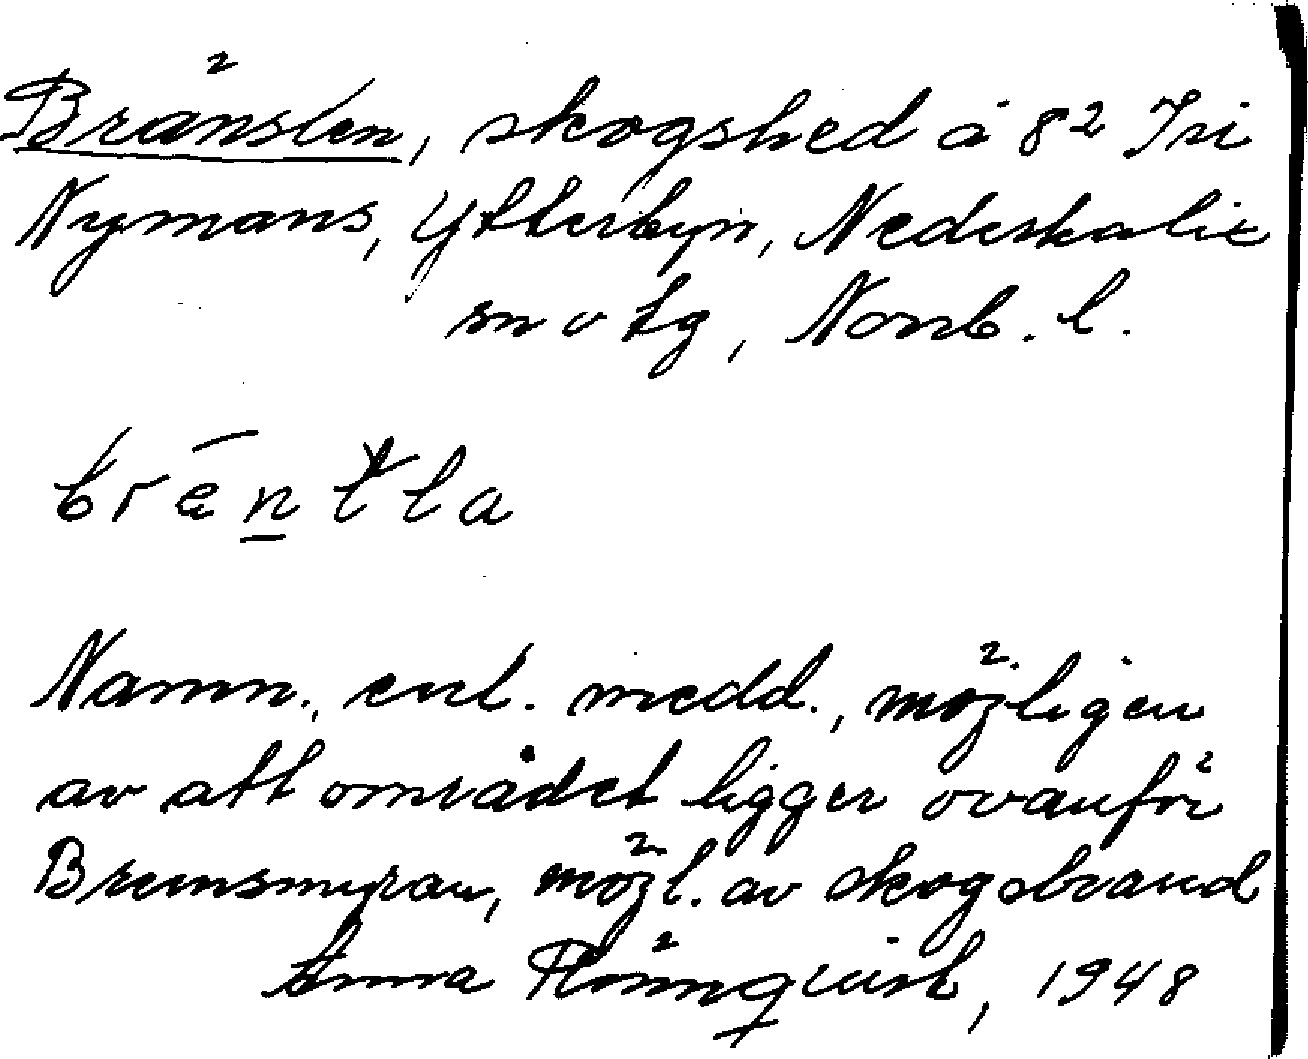 Bränslen, skogshed å 8² Isi
Nymans, Ytterbyn, Nederkalix
sn o tg, Norrb. l.
brā̈n̲tla
Namn, enl. medd., möjligen
av att området ligger ovanför
Bremsmyran, möjl. av skogsbrand
Anna Rönnqvist, 1948